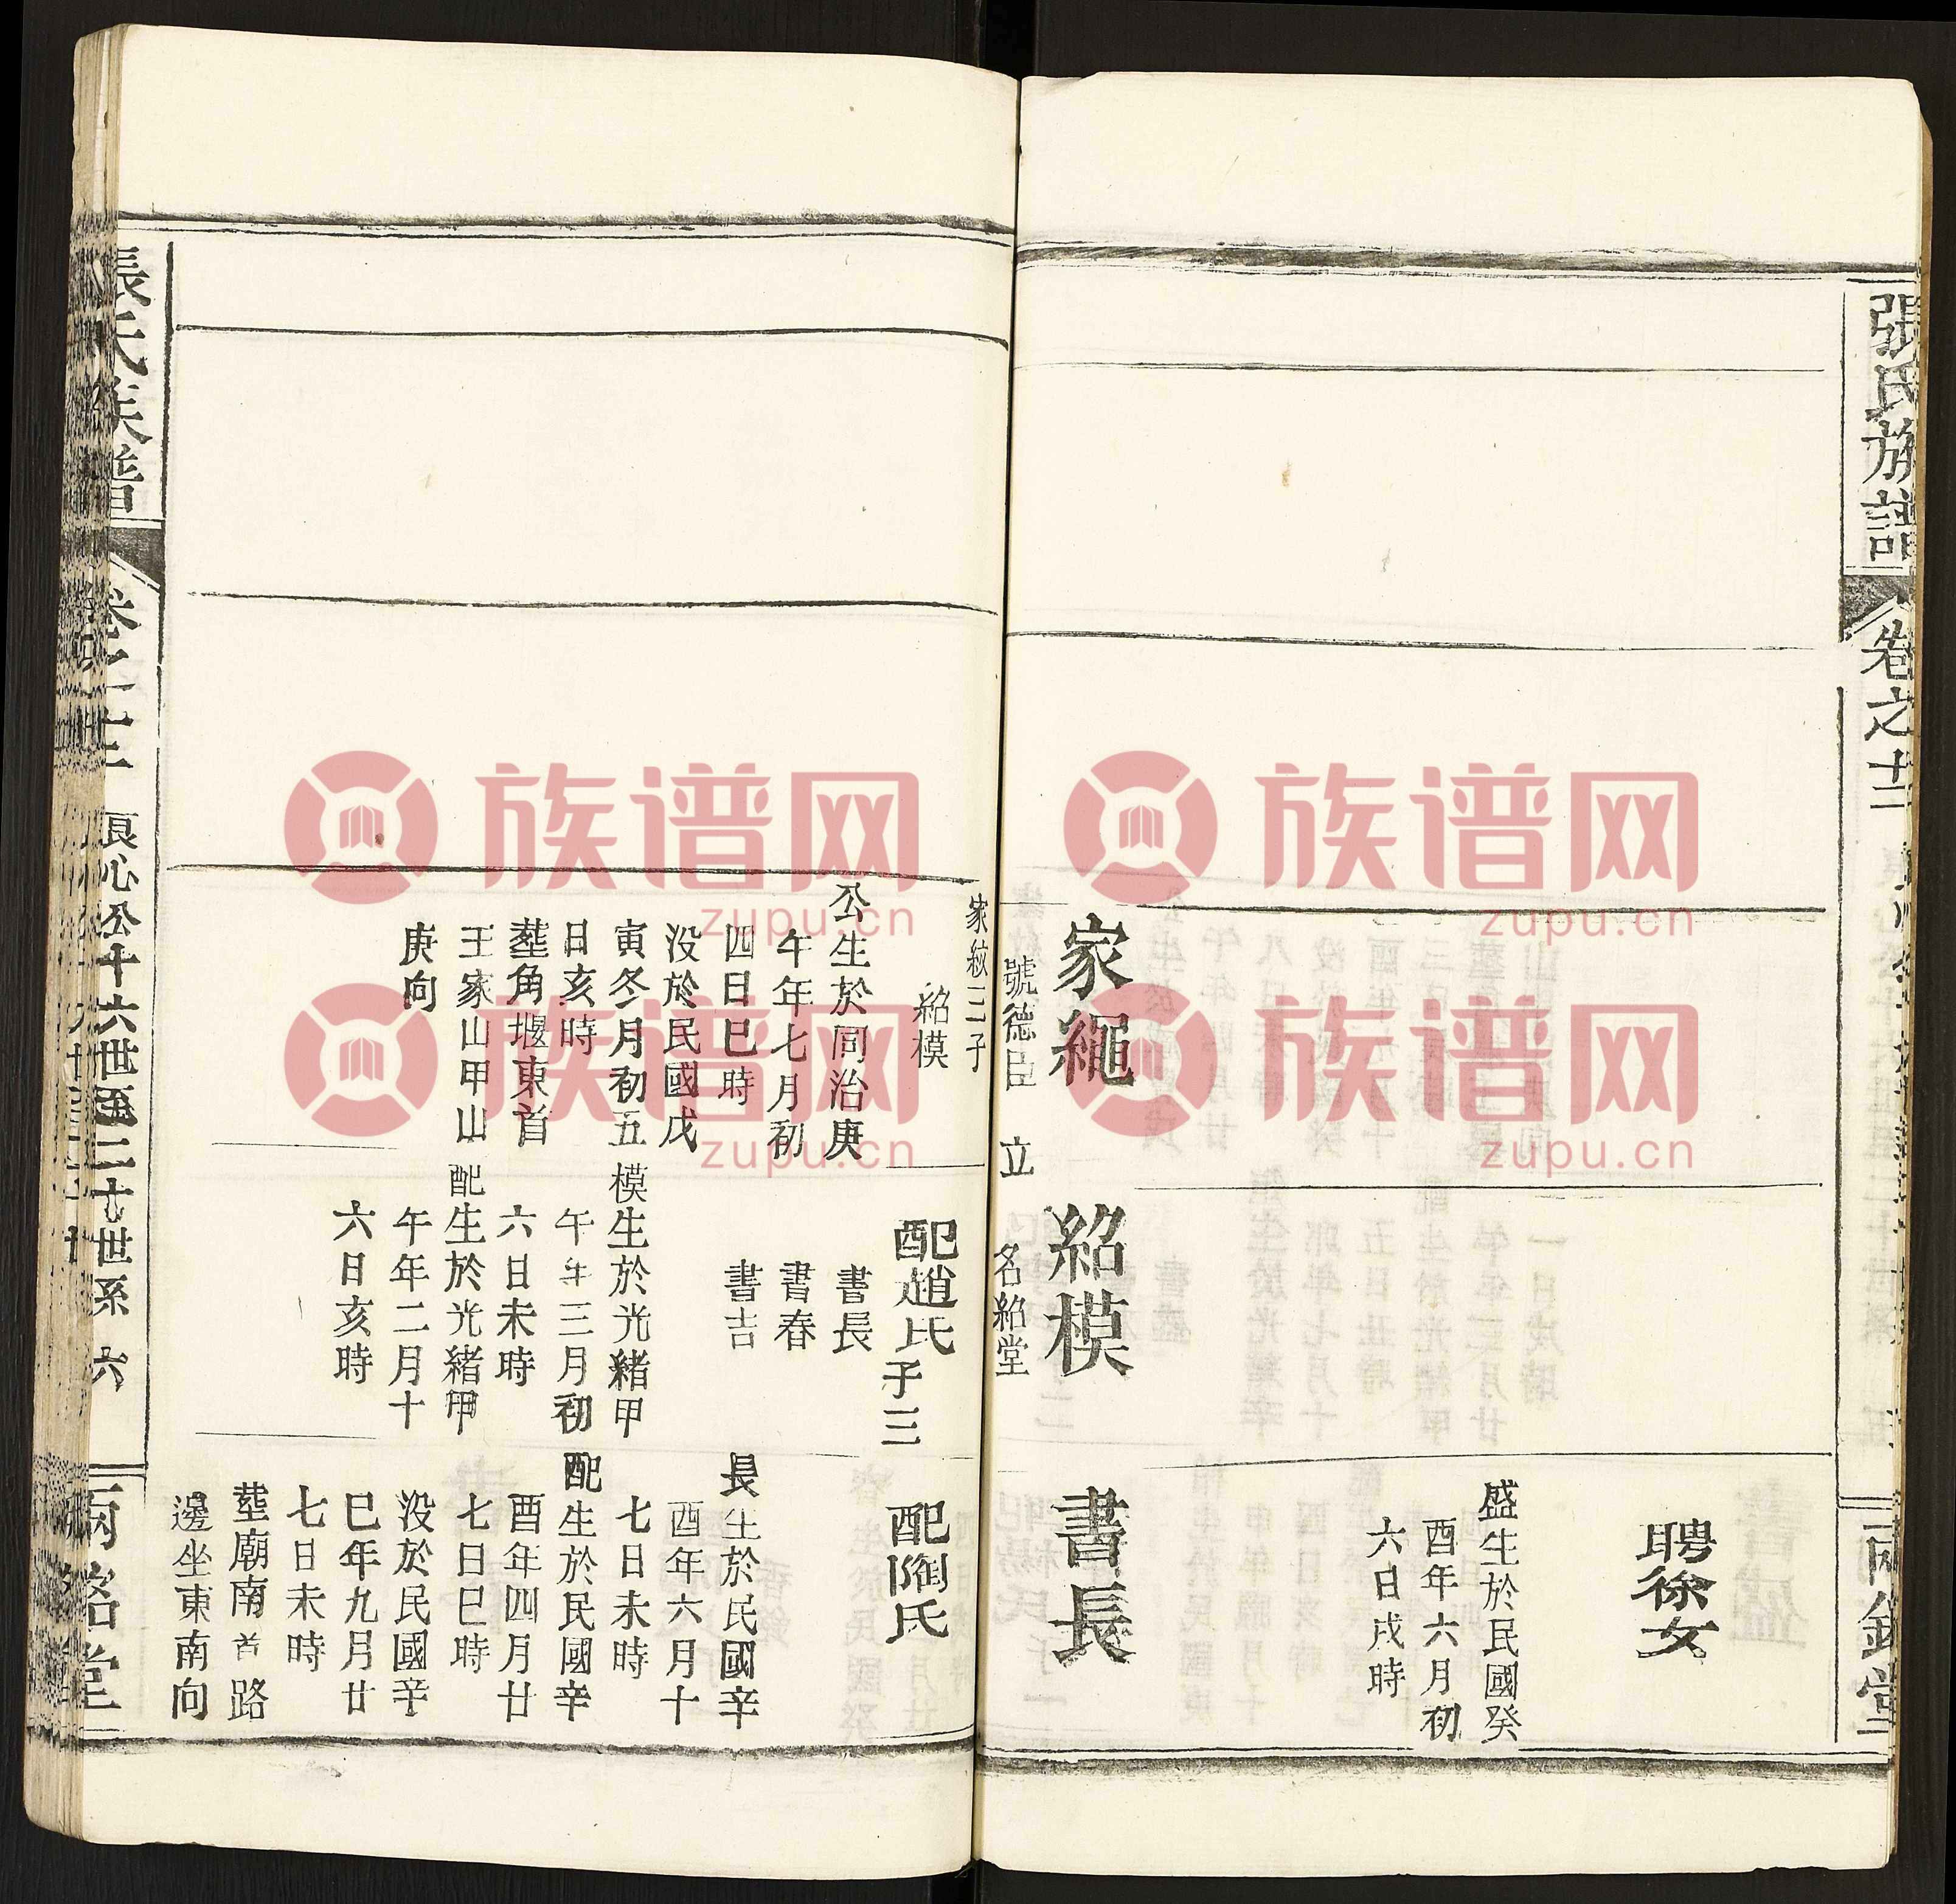 張氏族譜
卷之十二
兩銘堂
聘徐女
盛生於民國癸
酉年六月初
六日戌時
家繩
號德臣 立
紹模
名紹堂
書長
家紋三子
紹模
公生於同治庚
午年七月初
四日巳時
没於民國戊
寅冬月初五
日亥時
塟角堰東首
王家山甲山
庚向
配趙氏子三
書長
書春
書吉
模生於光緒甲
午年三月初
六日未時
配生於光緒甲
午年二月十
六日亥時
配陶氏
長生於民國辛
酉年六月十
七日未時
配生於民國辛
酉年四月廿
七日巳時
没於民國辛
巳年九月廿
七日未時
塟廟南首路
邊坐東南向
張氏族譜
卷之十二
良心公十六世至二十世系 六
兩銘堂
族谱网
zupu.cn
族谱网
zupu.cn
族谱网
zupu.cn
族谱网
zupu.cn